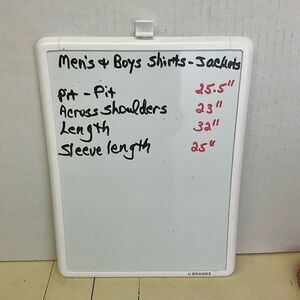 Men's & Boys Shirts - Jackets
Pit - Pit 25.5"
Across shoulders 23"
Length 32"
Sleeve length 25"
U BRANDS